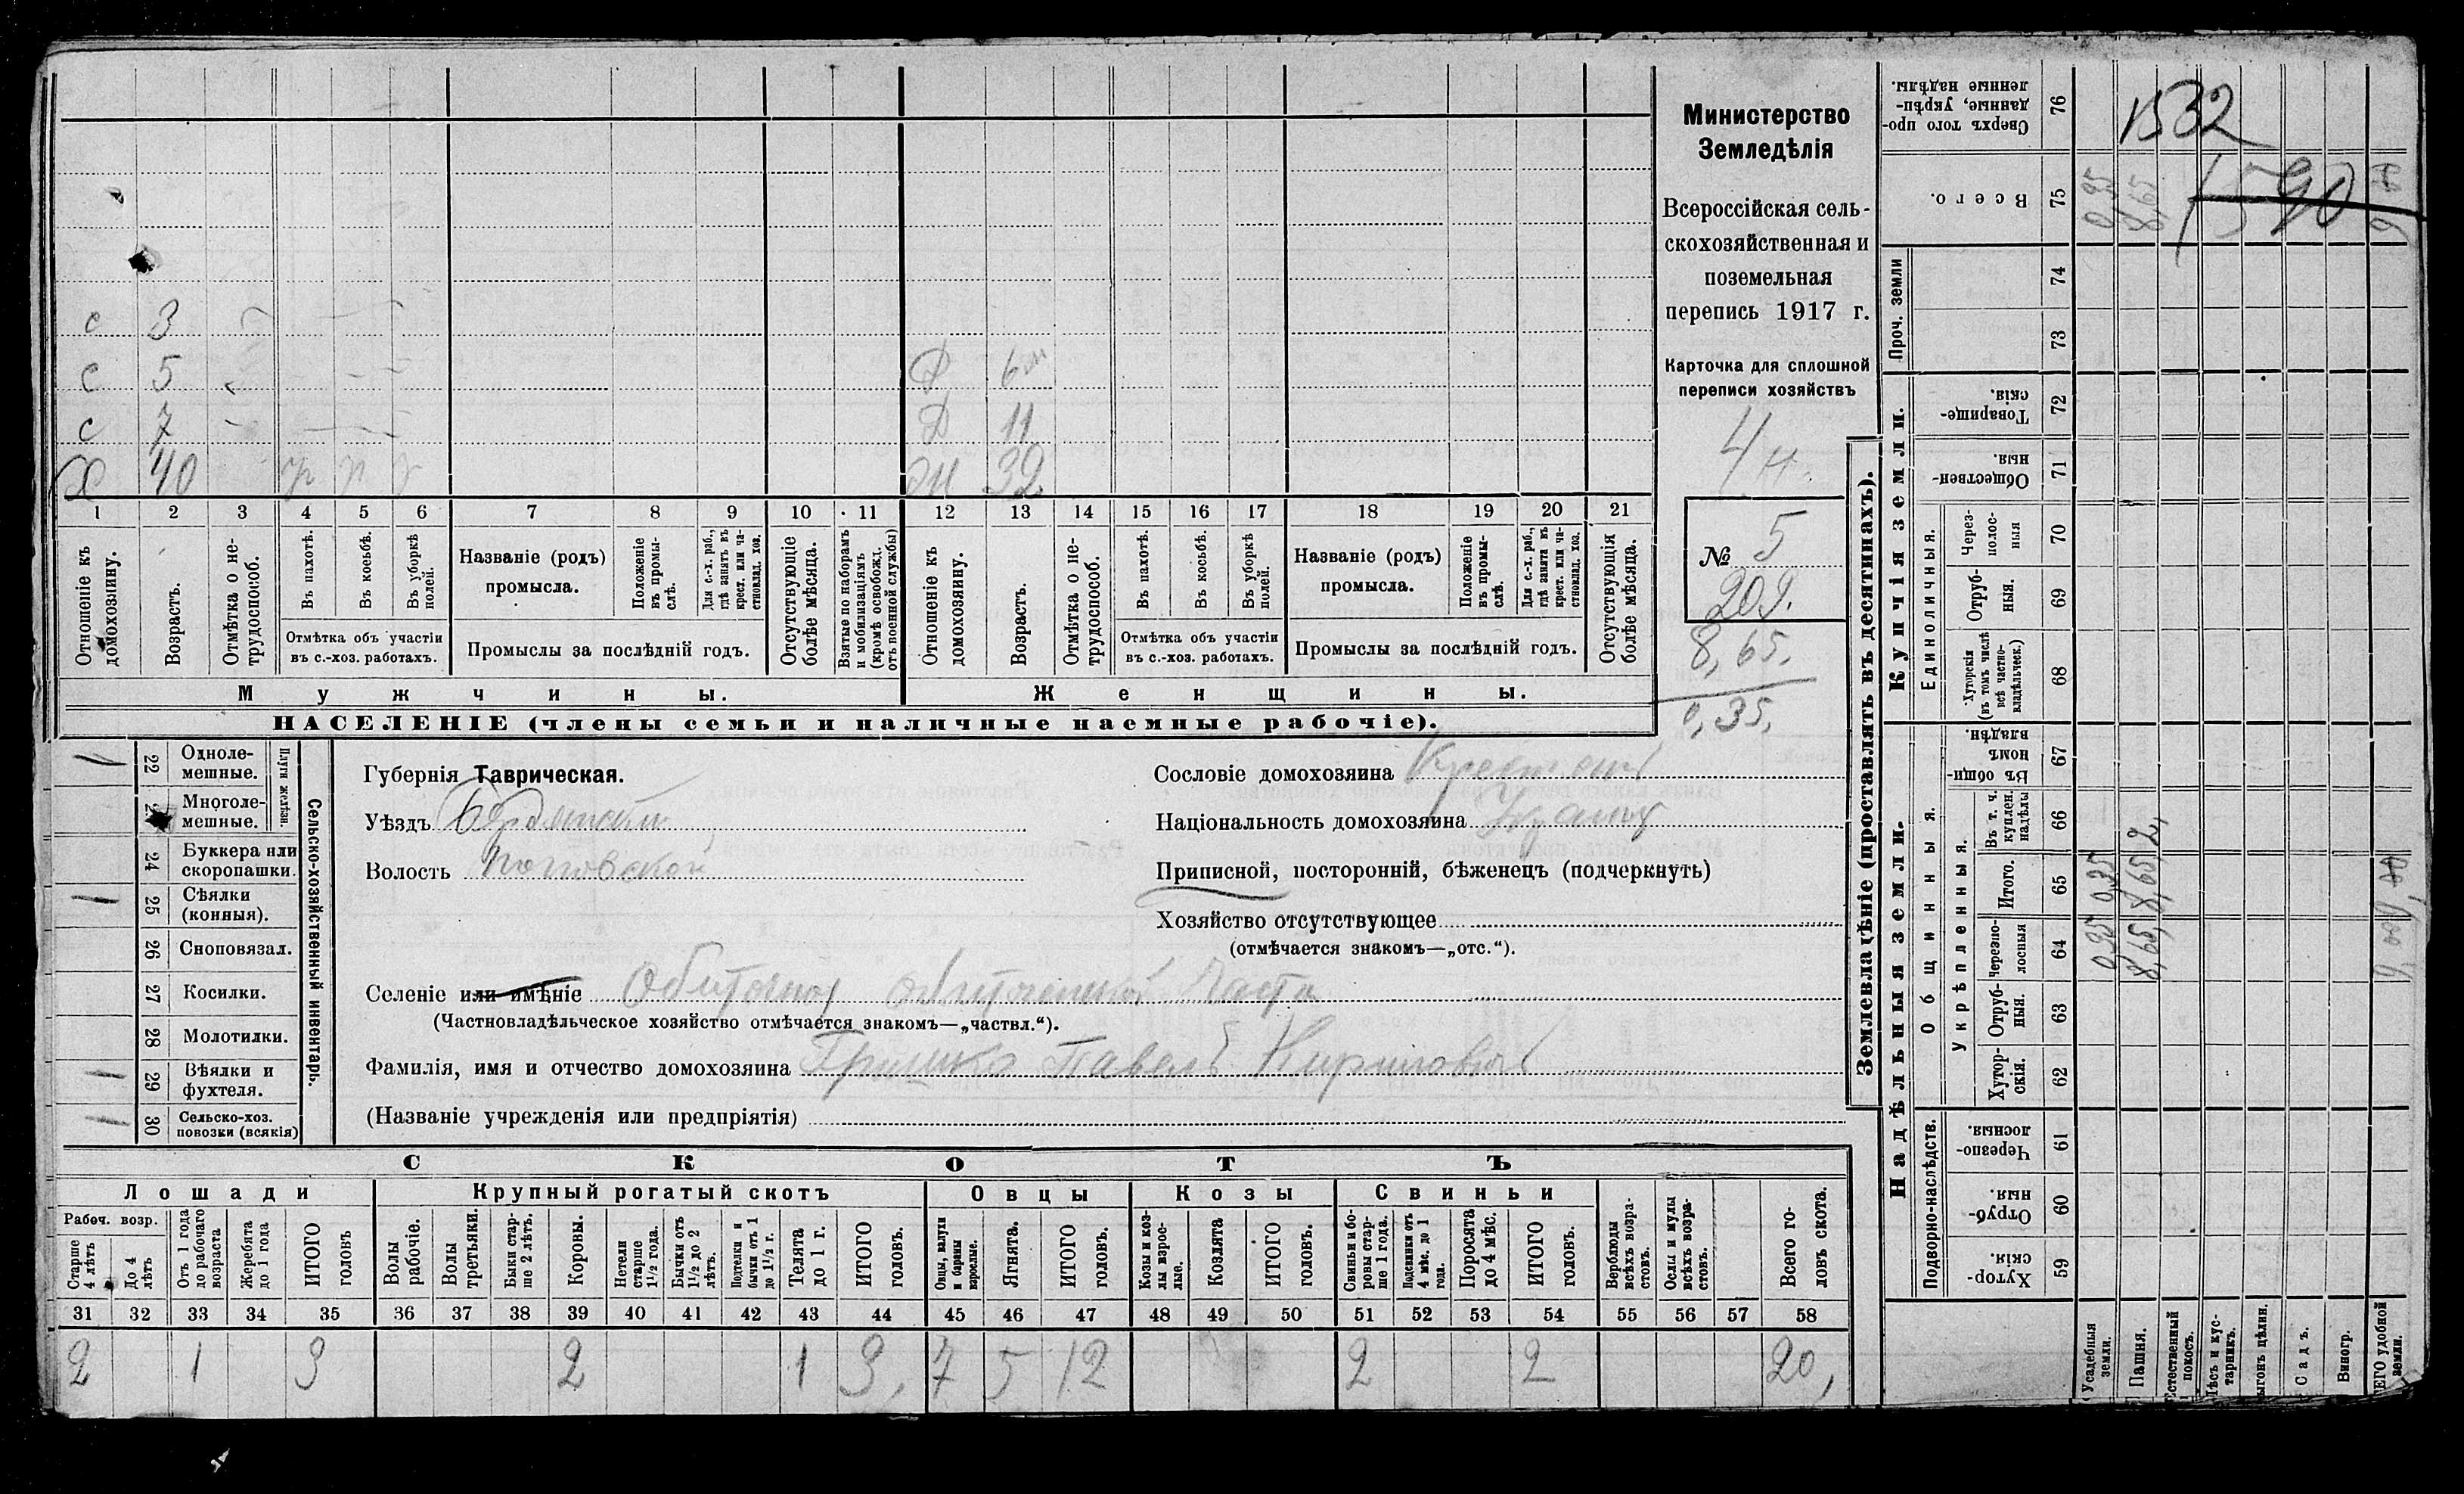 с 3
с 5 Д 6 м
с 7 Д 11
Х 40 р р р Ж 32
1 2 3 4 5 6 7 8 9 10 11 12 13 14 15 16 17 18 19 20 21
Отношеніе къ домохозяину.
Возрастъ.
Отмѣтка о нетрудоспособ.
Въ пахотѣ.
Въ косьбѣ.
Въ уборкѣ полей.
Отмѣтка объ участіи
въ с.-хоз. работахъ.
Названіе (родъ)
промысла.
Положеніе въ промыслѣ.
Для с.-х. раб., гдѣ занятъ въ крест. или частновлад. хоз.
Промыслы за послѣдній годъ.
Отсутствующіе болѣе мѣсяца.
Взятые по наборамъ и мобилизаціямъ (кромѣ освобожд. отъ военной службы)
Отношеніе къ домохозяину.
Возрастъ.
Отмѣтка о нетрудоспособ.
Въ пахотѣ.
Въ косьбѣ.
Въ уборкѣ полей.
Отмѣтка объ участіи
въ с.-хоз. работахъ.
Названіе (родъ)
промысла.
Положеніе въ промыслѣ.
Для с.-х. раб., гдѣ занята въ крест. или частновлад. хоз.
Промыслы за послѣдній годъ.
Отсутствующія болѣе мѣсяца.
Мужчины. Женщины.
НАСЕЛЕНІЕ (члены семьи и наличные наемные рабочіе).
Министерство
Земледѣлія
Всероссійская сель-
скохозяйственная и
поземельная
перепись 1917 г.
Карточка для сплошной
переписи хозяйствъ
4 н.
№ 5
209.
8,65.
0,35.
Сельско-хозяйственный инвентарь.
Плуги желѣзн.
22 Однолемешные.
23 Многолемешные.
24 Буккера или скоропашки.
25 Сѣялки (конныя).
26 Сноповязал.
27 Косилки.
28 Молотилки.
29 Вѣялки и фухтеля.
30 Сельско-хоз. повозки (всякія)
Губернія Таврическая.
Уѣздъ
Волость Поповской
Сословіе домохозяина
Національность домохозяина
Приписной, посторонній, бѣженецъ (подчеркнуть)
Хозяйство отсутствующее
(отмѣчается знакомъ—„отс.“).
Селеніе или имѣніе
(Частновладѣльческое хозяйство отмѣчается знакомъ—„частвл.“).
Фамилія, имя и отчество домохозяина Гришко Павелъ Кириловичъ
(Названіе учрежденія или предпріятія)
СКОТЪ
Лошади Крупный рогатый скотъ Овцы Козы Свиньи
Рабоч. возр.
Старше 4 лѣтъ
До 4 лѣтъ
Отъ 1 года до рабочаго возраста
Жеребята до 1 года
ИТОГО головъ
Волы рабочіе.
Волы третьяки.
Быки старше 2 лѣтъ.
Коровы.
Нетели старше 1½ года.
Бычки отъ 1½ до 2 лѣтъ.
Подтелки и бычки отъ 1 до 1½ г.
Телята до 1 г.
ИТОГО головъ.
Овцы, валухи и бараны взрослые.
Ягнята.
ИТОГО головъ.
Козы и козлы взрослые.
Козлята
ИТОГО головъ.
Свиньи и боровы старше 1 года.
Подсвинки отъ 4 мѣс. до 1 года.
Поросята до 4 мѣс.
ИТОГО головъ.
Верблюды всѣхъ возрастовъ.
Ослы и мулы всѣхъ возрастовъ.
Всего головъ скота.
31 32 33 34 35 36 37 38 39 40 41 42 43 44 45 46 47 48 49 50 51 52 53 54 55 56 57 58
2 1 3 2 1 3, 7 5 12 2 2 20,
Землевладѣніе (проставлять въ десятинахъ).
Купчія земли.
Надѣльныя земли.
76 Сверхъ того проданные, укрѣпленные надѣлы.
1532
75 Всего.
0,35
8,65
1590
Проч. земли
74
73
72 Товарищескія.
71 Общественныя.
Единоличныя.
70 Черезполосныя
69 Отрубныя.
68 Хуторскія (въ томъ числѣ всѣ частновладѣльческ.)
Общинныя.
67 Въ общинномъ владѣн.
Укрѣпленныя.
66 Въ т. ч. куплен. надѣлы
65 Итого.
64 Черезполосныя
63 Отрубныя.
62 Хуторскія.
0,35 0,35
8,65, 8,65, 2,
Подворно-наслѣдств.
61 Черезполосныя.
60 Отрубныя.
59 Хуторскія.
Усадебныя земли.
Пашня.
Естественный покосъ.
Лѣсъ и кустарникъ.
Выгонъ цѣлин.
Садъ.
Виногр.
ВСЕГО удобной земли.